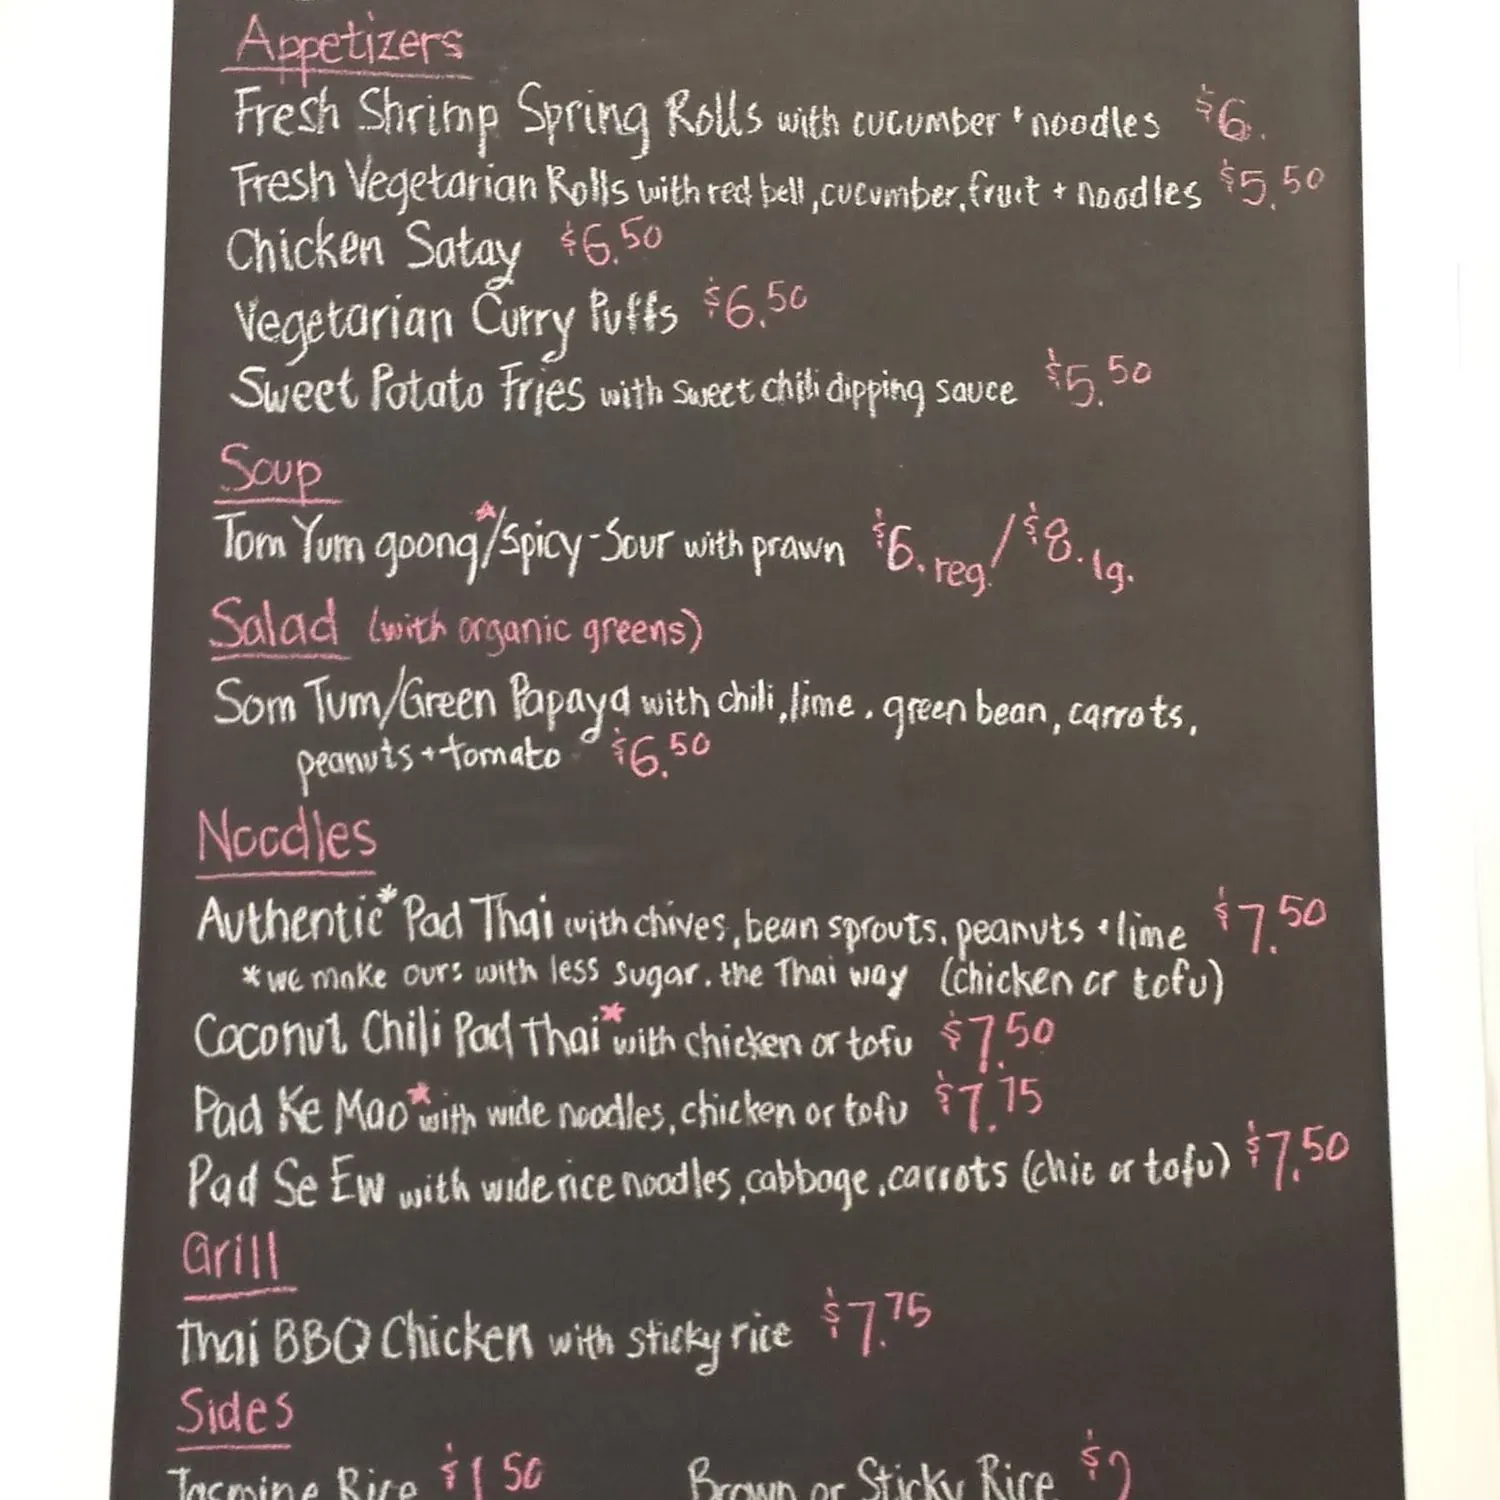 Appetizers
Fresh Shrimp Spring Rolls with cucumber + noodles $6.
Fresh Vegetarian Rolls with red bell, cucumber, fruit + noodles $5.50
Chicken Satay $6.50
Vegetarian Curry Puffs $6.50
Sweet Potato Fries with sweet chili dipping sauce $5.50
Soup
Tom Yum goong*/Spicy-Sour with prawn $6. reg./$8. lg.
Salad (with organic greens)
Som Tum/Green Papaya with chili, lime, green bean, carrots,
peanuts + tomato $6.50
Noodles
Authentic* Pad Thai with chives, bean sprouts, peanuts + lime $7.50
*we make ours with less sugar, the Thai way (chicken or tofu)
Coconut Chili Pad Thai* with chicken or tofu $7.50
Pad Ke Mao* with wide noodles, chicken or tofu $7.75
Pad Se Ew with wide rice noodles, cabbage, carrots (chic or tofu) $7.50
Grill
Thai BBQ Chicken with sticky rice $7.75
Sides
Jasmine Rice $1.50 Brown or Sticky Rice $2